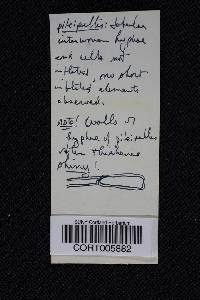 pileipellis: tubular
interwoven hyphae
and cells not
inflated, no short
inflated elements
observed.
NOTE! Walls of
hyphae of pileipellis
often thickened
shiny!
SUNY Cortland Herbarium
CORT005882